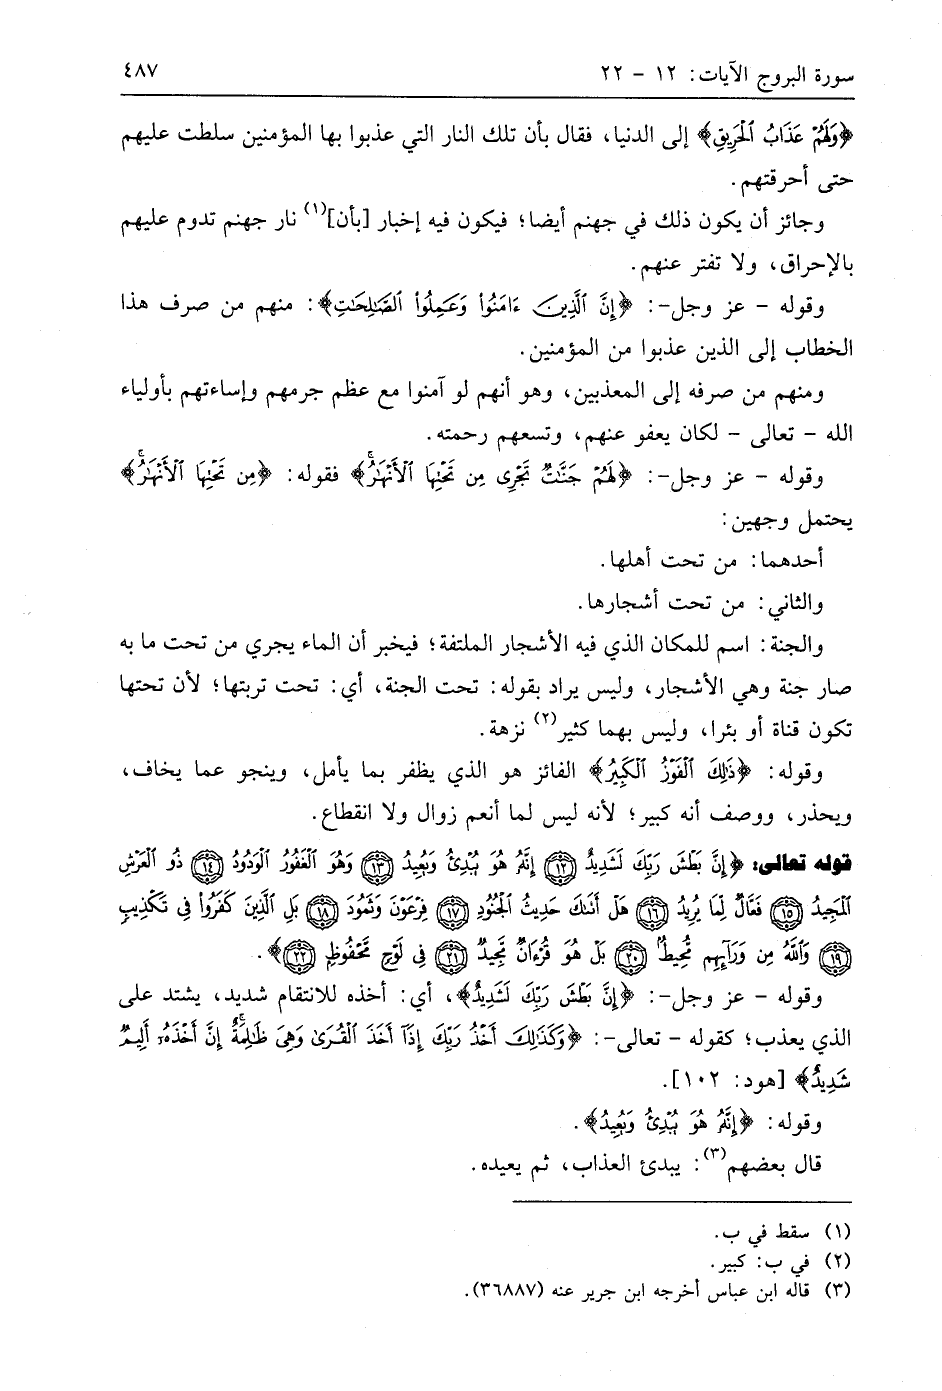 سورة البروج الآيات: ١٢ - ٢٢ ٤٨٧
﴿وَلَهُمْ عَذَابُ الْحَرِيقِ﴾ إلى الدنيا، فقال بأن تلك النار التي عذبوا بها المؤمنين سلطت عليهم
حتى أحرقتهم.
وجائز أن يكون ذلك في جهنم أيضا؛ فيكون فيه إخبار [بأن](١) نار جهنم تدوم عليهم
بالإحراق، ولا تفتر عنهم.
وقوله - عز وجل-: ﴿إِنَّ الَّذِينَ ءَامَنُوا وَعَمِلُوا الصَّالِحَاتِ﴾: منهم من صرف هذا
الخطاب إلى الذين عذبوا من المؤمنين.
ومنهم من صرفه إلى المعذبين، وهو أنهم لو آمنوا مع عظم جرمهم وإساءتهم بأولياء
الله - تعالى - لكان يعفو عنهم، وتسعهم رحمته.
وقوله - عز وجل-: ﴿لَهُمْ جَنَّاتٌ تَجْرِي مِن تَحْتِهَا الْأَنْهَارُ﴾ فقوله: ﴿مِن تَحْتِهَا الْأَنْهَارُ﴾
يحتمل وجهين:
أحدهما: من تحت أهلها.
والثاني: من تحت أشجارها.
والجنة: اسم للمكان الذي فيه الأشجار الملتفة؛ فيخبر أن الماء يجري من تحت ما به
صار جنة وهي الأشجار، وليس يراد بقوله: تحت الجنة، أي: تحت تربتها؛ لأن تحتها
تكون قناة أو بئرا، وليس بهما كثير(٢) نزهة.
وقوله: ﴿ذَٰلِكَ الْفَوْزُ الْكَبِيرُ﴾ الفائز هو الذي يظفر بما يأمل، وينجو عما يخاف،
ويحذر، ووصف أنه كبير؛ لأنه ليس لما أنعم زوال ولا انقطاع.
قوله تعالى: ﴿إِنَّ بَطْشَ رَبِّكَ لَشَدِيدٌ ١٢ إِنَّهُ هُوَ يُبْدِئُ وَيُعِيدُ ١٣ وَهُوَ الْغَفُورُ الْوَدُودُ ١٤ ذُو الْعَرْشِ
الْمَجِيدُ ١٥ فَعَّالٌ لِّمَا يُرِيدُ ١٦ هَلْ أَتَاكَ حَدِيثُ الْجُنُودِ ١٧ فِرْعَوْنَ وَثَمُودَ ١٨ بَلِ الَّذِينَ كَفَرُوا فِي تَكْذِيبٍ
١٩ وَاللَّهُ مِن وَرَائِهِم مُّحِيطٌ ٢٠ بَلْ هُوَ قُرْءَانٌ مَّجِيدٌ ٢١ فِي لَوْحٍ مَّحْفُوظٍ ٢٢﴾.
وقوله - عز وجل-: ﴿إِنَّ بَطْشَ رَبِّكَ لَشَدِيدٌ﴾، أي: أخذه للانتقام شديد، يشتد على
الذي يعذب؛ كقوله - تعالى-: ﴿وَكَذَٰلِكَ أَخْذُ رَبِّكَ إِذَا أَخَذَ الْقُرَىٰ وَهِيَ ظَالِمَةٌ إِنَّ أَخْذَهُ أَلِيمٌ
شَدِيدٌ﴾ [هود: ١٠٢].
وقوله: ﴿إِنَّهُ هُوَ يُبْدِئُ وَيُعِيدُ﴾.
قال بعضهم(٣): يبدئ العذاب، ثم يعيده.
(١) سقط في ب.
(٢) في ب: كبير.
(٣) قاله ابن عباس أخرجه ابن جرير عنه (٣٦٨٨٧).